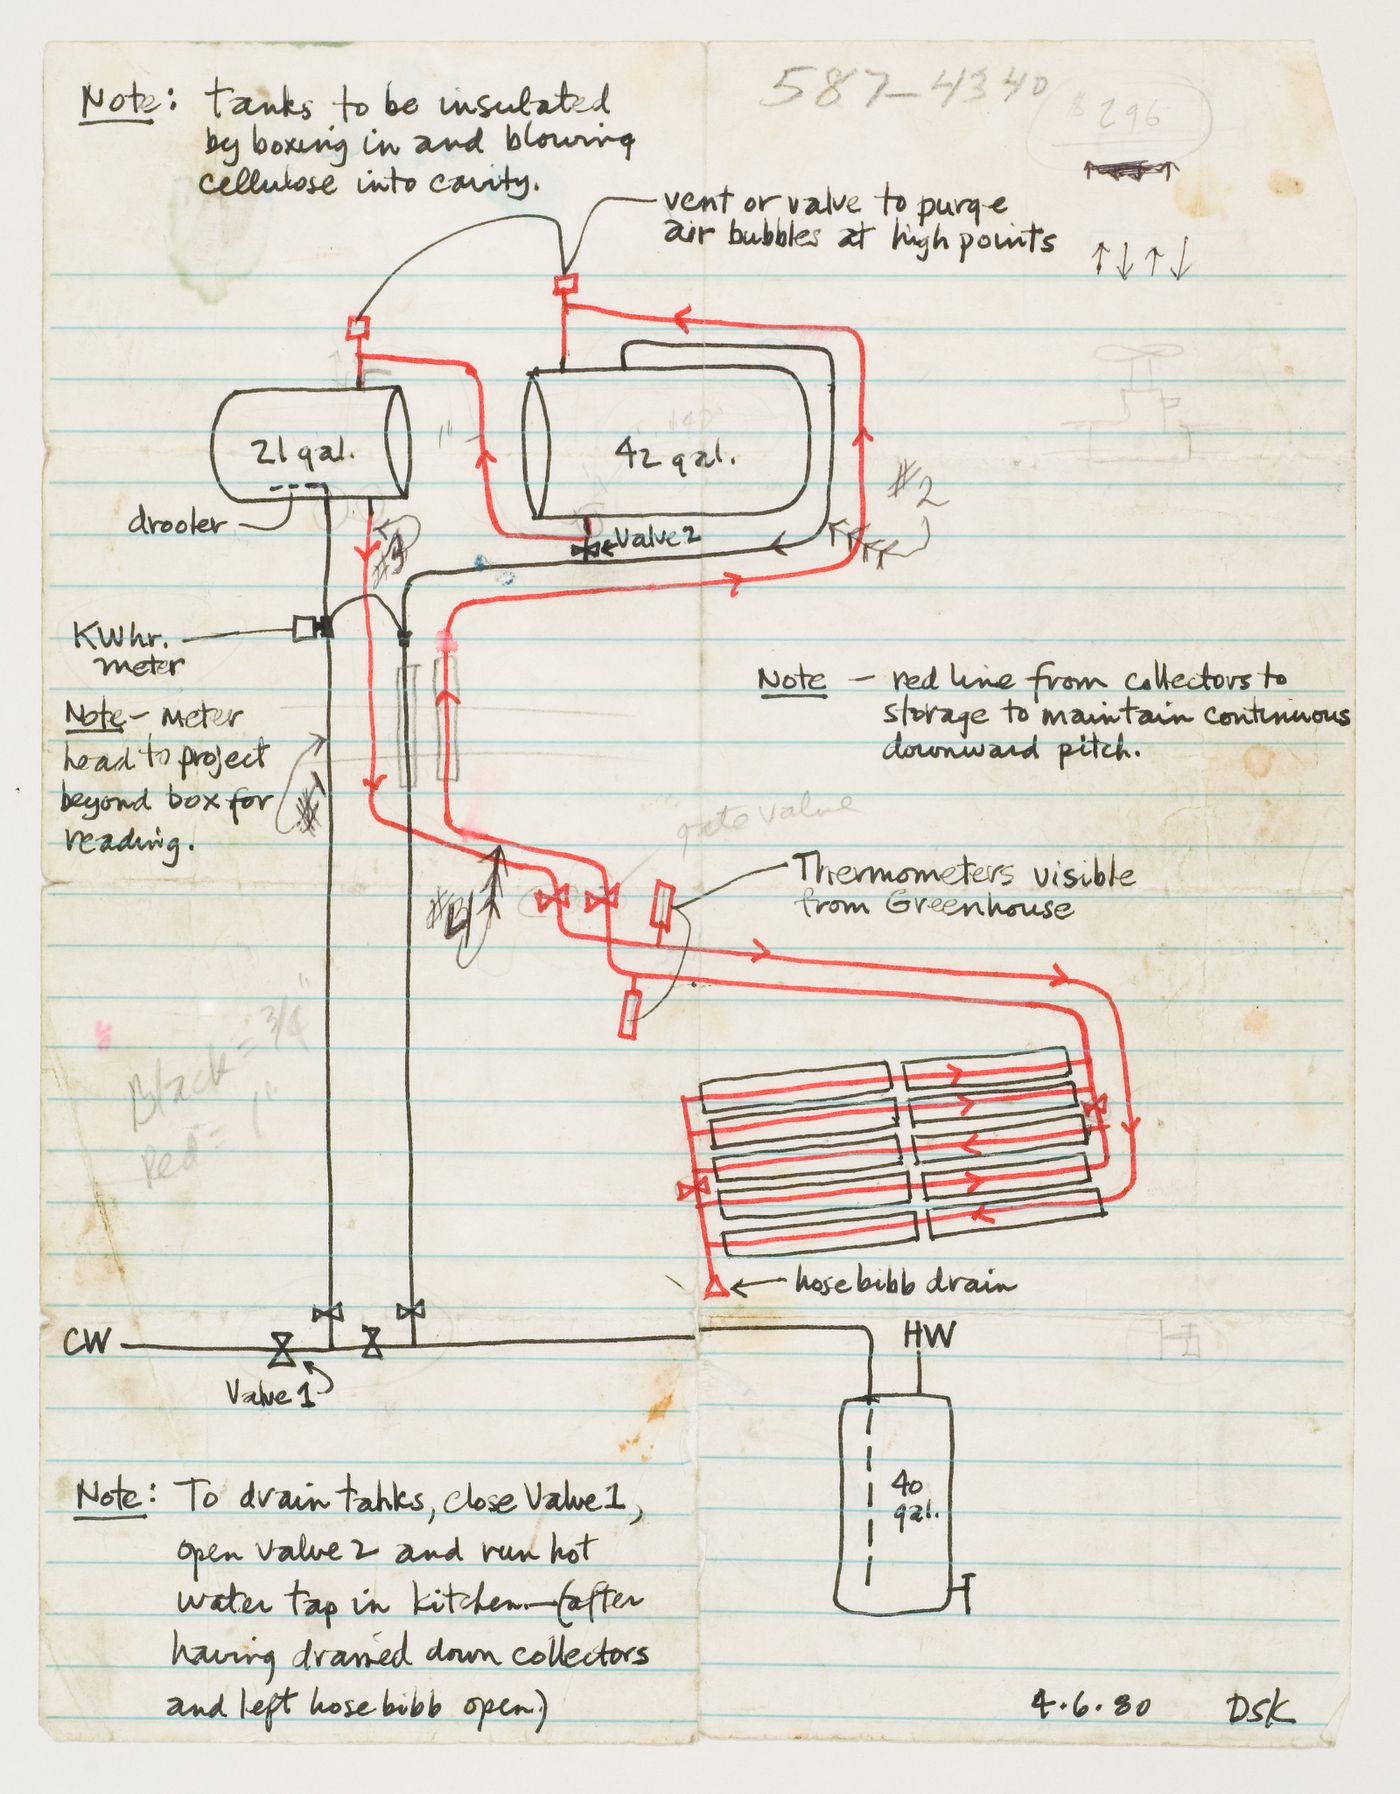 587-4340
$296
Note: tanks to be insulated
by boxing in and blowing
cellulose into cavity.
vent or valve to purge
air bubbles at high points
21 gal.
42 gal.
1"
#2
drooler
Valve 2
#3
KWhr.
meter
Note- meter
head to project
beyond box for
reading.
#1
Note - red line from collectors to
storage to maintain continuous
downward pitch.
gate valve
Thermometers visible
from Greenhouse
Black = 3/4"
Red = 1"
hose bibb drain
CW
HW
Valve 1
40
gal.
Note: To drain tanks, close Valve 1,
open valve 2 and run hot
water tap in kitchen—(after
having drained down collectors
and left hose bibb open)
4·6·80 DSK